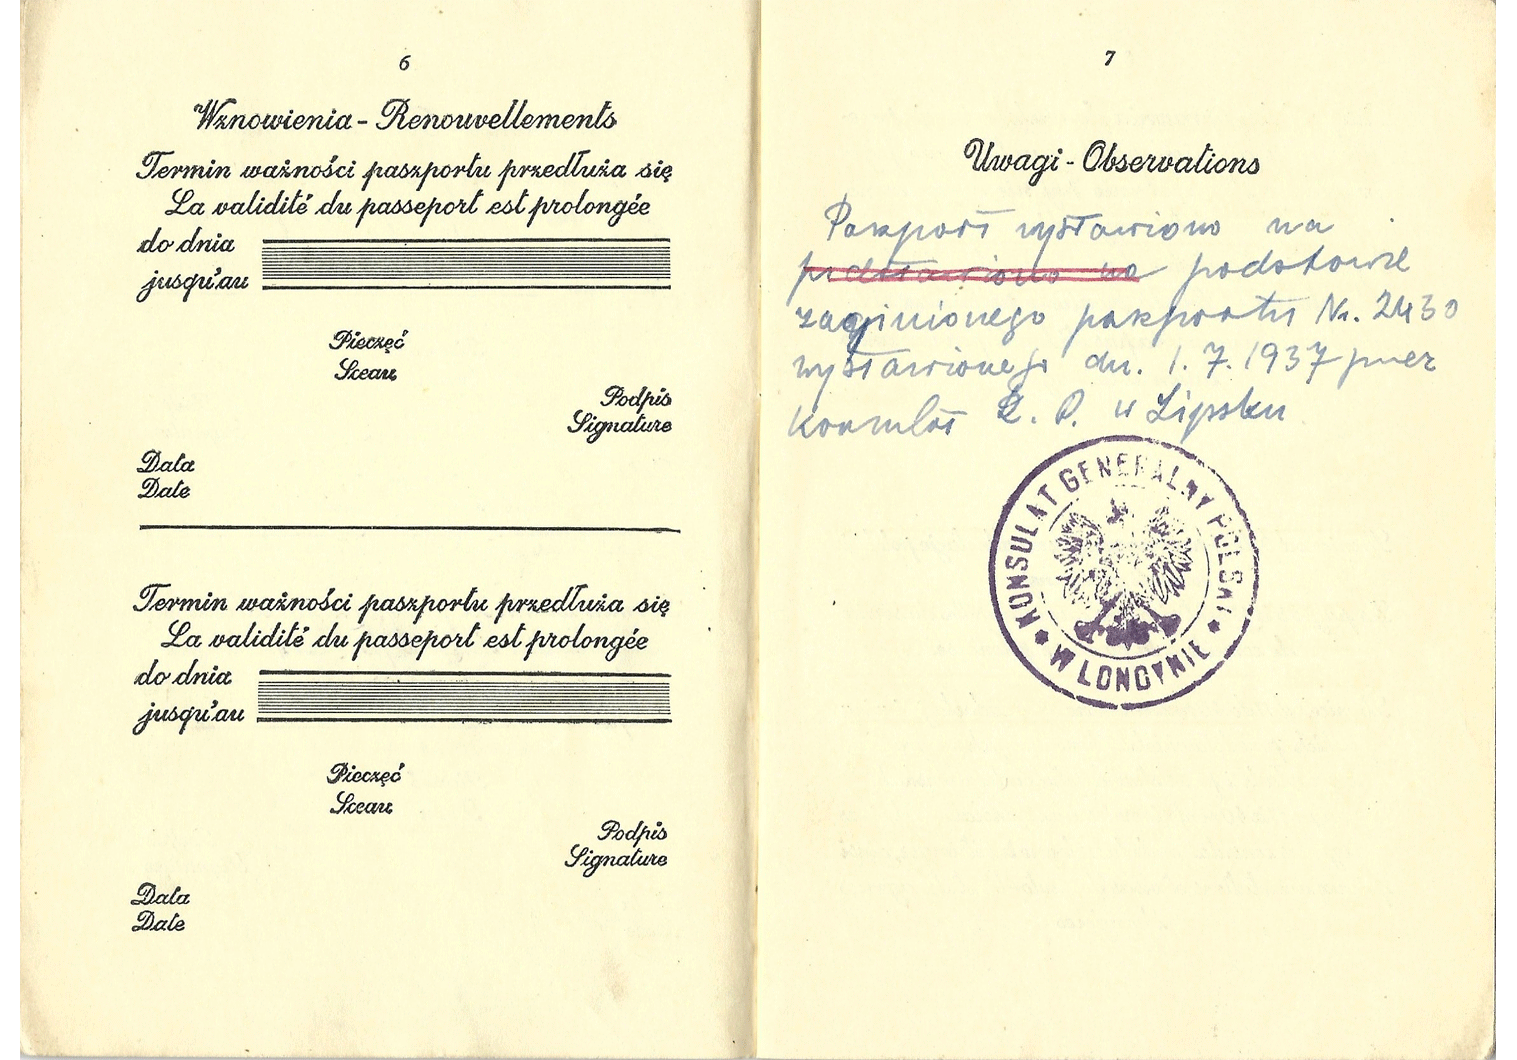 6
Wznowienia - Renouvellements
Termin ważności paszportu przedłuża się
La validité du passeport est prolongée
do dnia
jusqu'au
Pieczęć
Sceau
Podpis
Signature
Data
Date
Termin ważności paszportu przedłuża się
La validité du passeport est prolongée
do dnia
jusqu'au
Pieczęć
Sceau
Podpis
Signature
Data
Date
7
Uwagi - Observations
Paszport wystawiono na
podstawie
zaginionego paszportu Nr. 2430
wystawionego dn. 1.7.1937 przez
Konsulat R. P. w Lipsku
KONSULAT GENERALNY POLSKI
W LONDYNIE